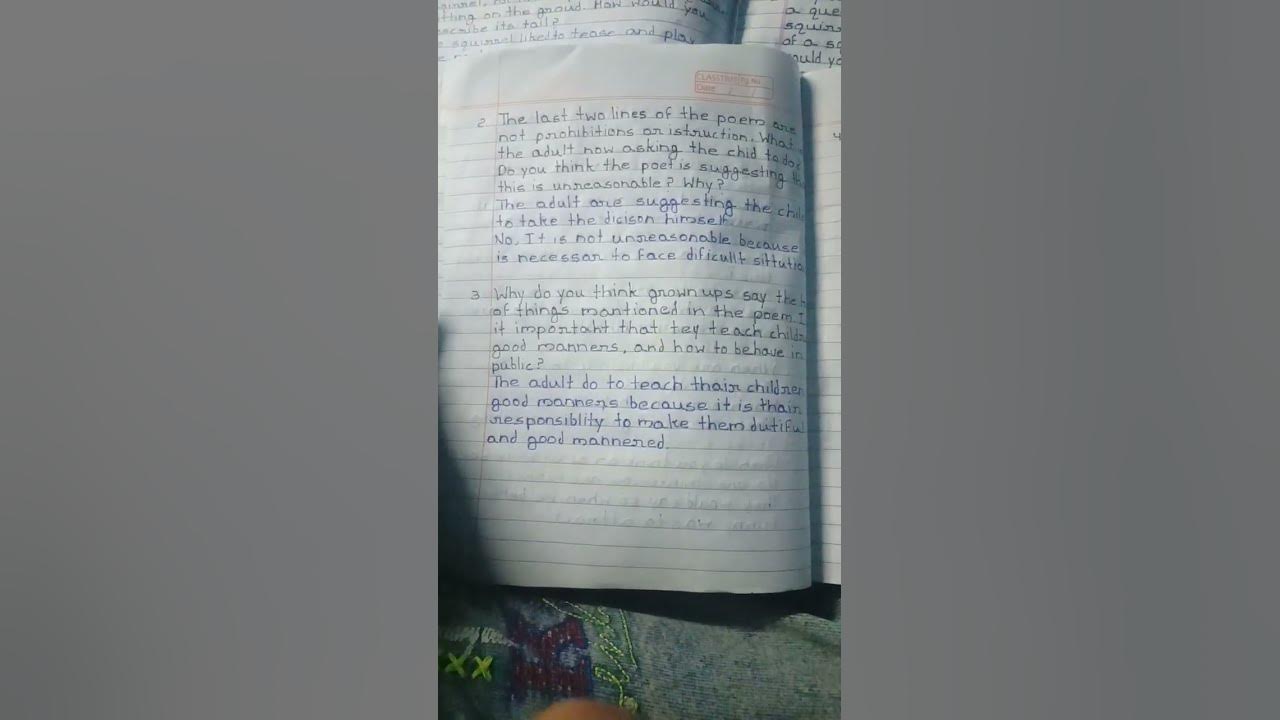 tting on the groud. How would you
scribe its tall?
squirrel liked to tease and play
a que
squirr
of a sq
ould yo
CLASSTIME Pg No.
Date / /
2 The last two lines of the poem are
not prohibitions or istruction. What
the adult now asking the chid to do?
Do you think the poet is suggesting th
this is unreasonable? Why?
The adult are suggesting the chil
to take the dicison himself.
No, It is not unreasonable because
is necessar to face dificullt sittutio
3 Why do you think grown ups say the
of things mantioned in the poem. I
it important that tey teach childr
good manners, and how to behave in
public?
The adult do to teach thair children
good manners because it is thair
responsiblity to make them dutiful
and good mannered.